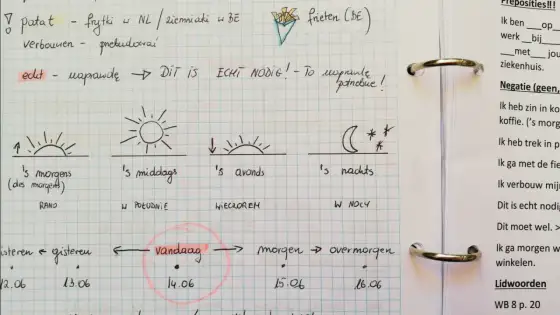 ! patat - frytki w NL / ziemniaki w BE
frieten (BE)
verbouwen - przebudować
echt - naprawdę → DIT IS ECHT NODIG! - To naprawdę potrzebne!
's morgens
(des morgens)
RANO
's middags
W POŁUDNIE
's avonds
WIECZOREM
's nachts
W NOCY
isteren ← gisteren ← vandaag → morgen → overmorgen
12.06 13.06 14.06 15.06 16.06
Preposities!!!
Ik ben __op_
werk __bij__
__met__ jou
ziekenhuis.
Negatie (geen,
Ik heb zin in ko
koffie. ('s morg
Ik heb trek in p
Ik ga met de fie
Ik verbouw mij
Dit is echt nodi
Dit moet wel. >
Ik ga morgen w
winkelen.
Lidwoorden
WB 8 p. 20